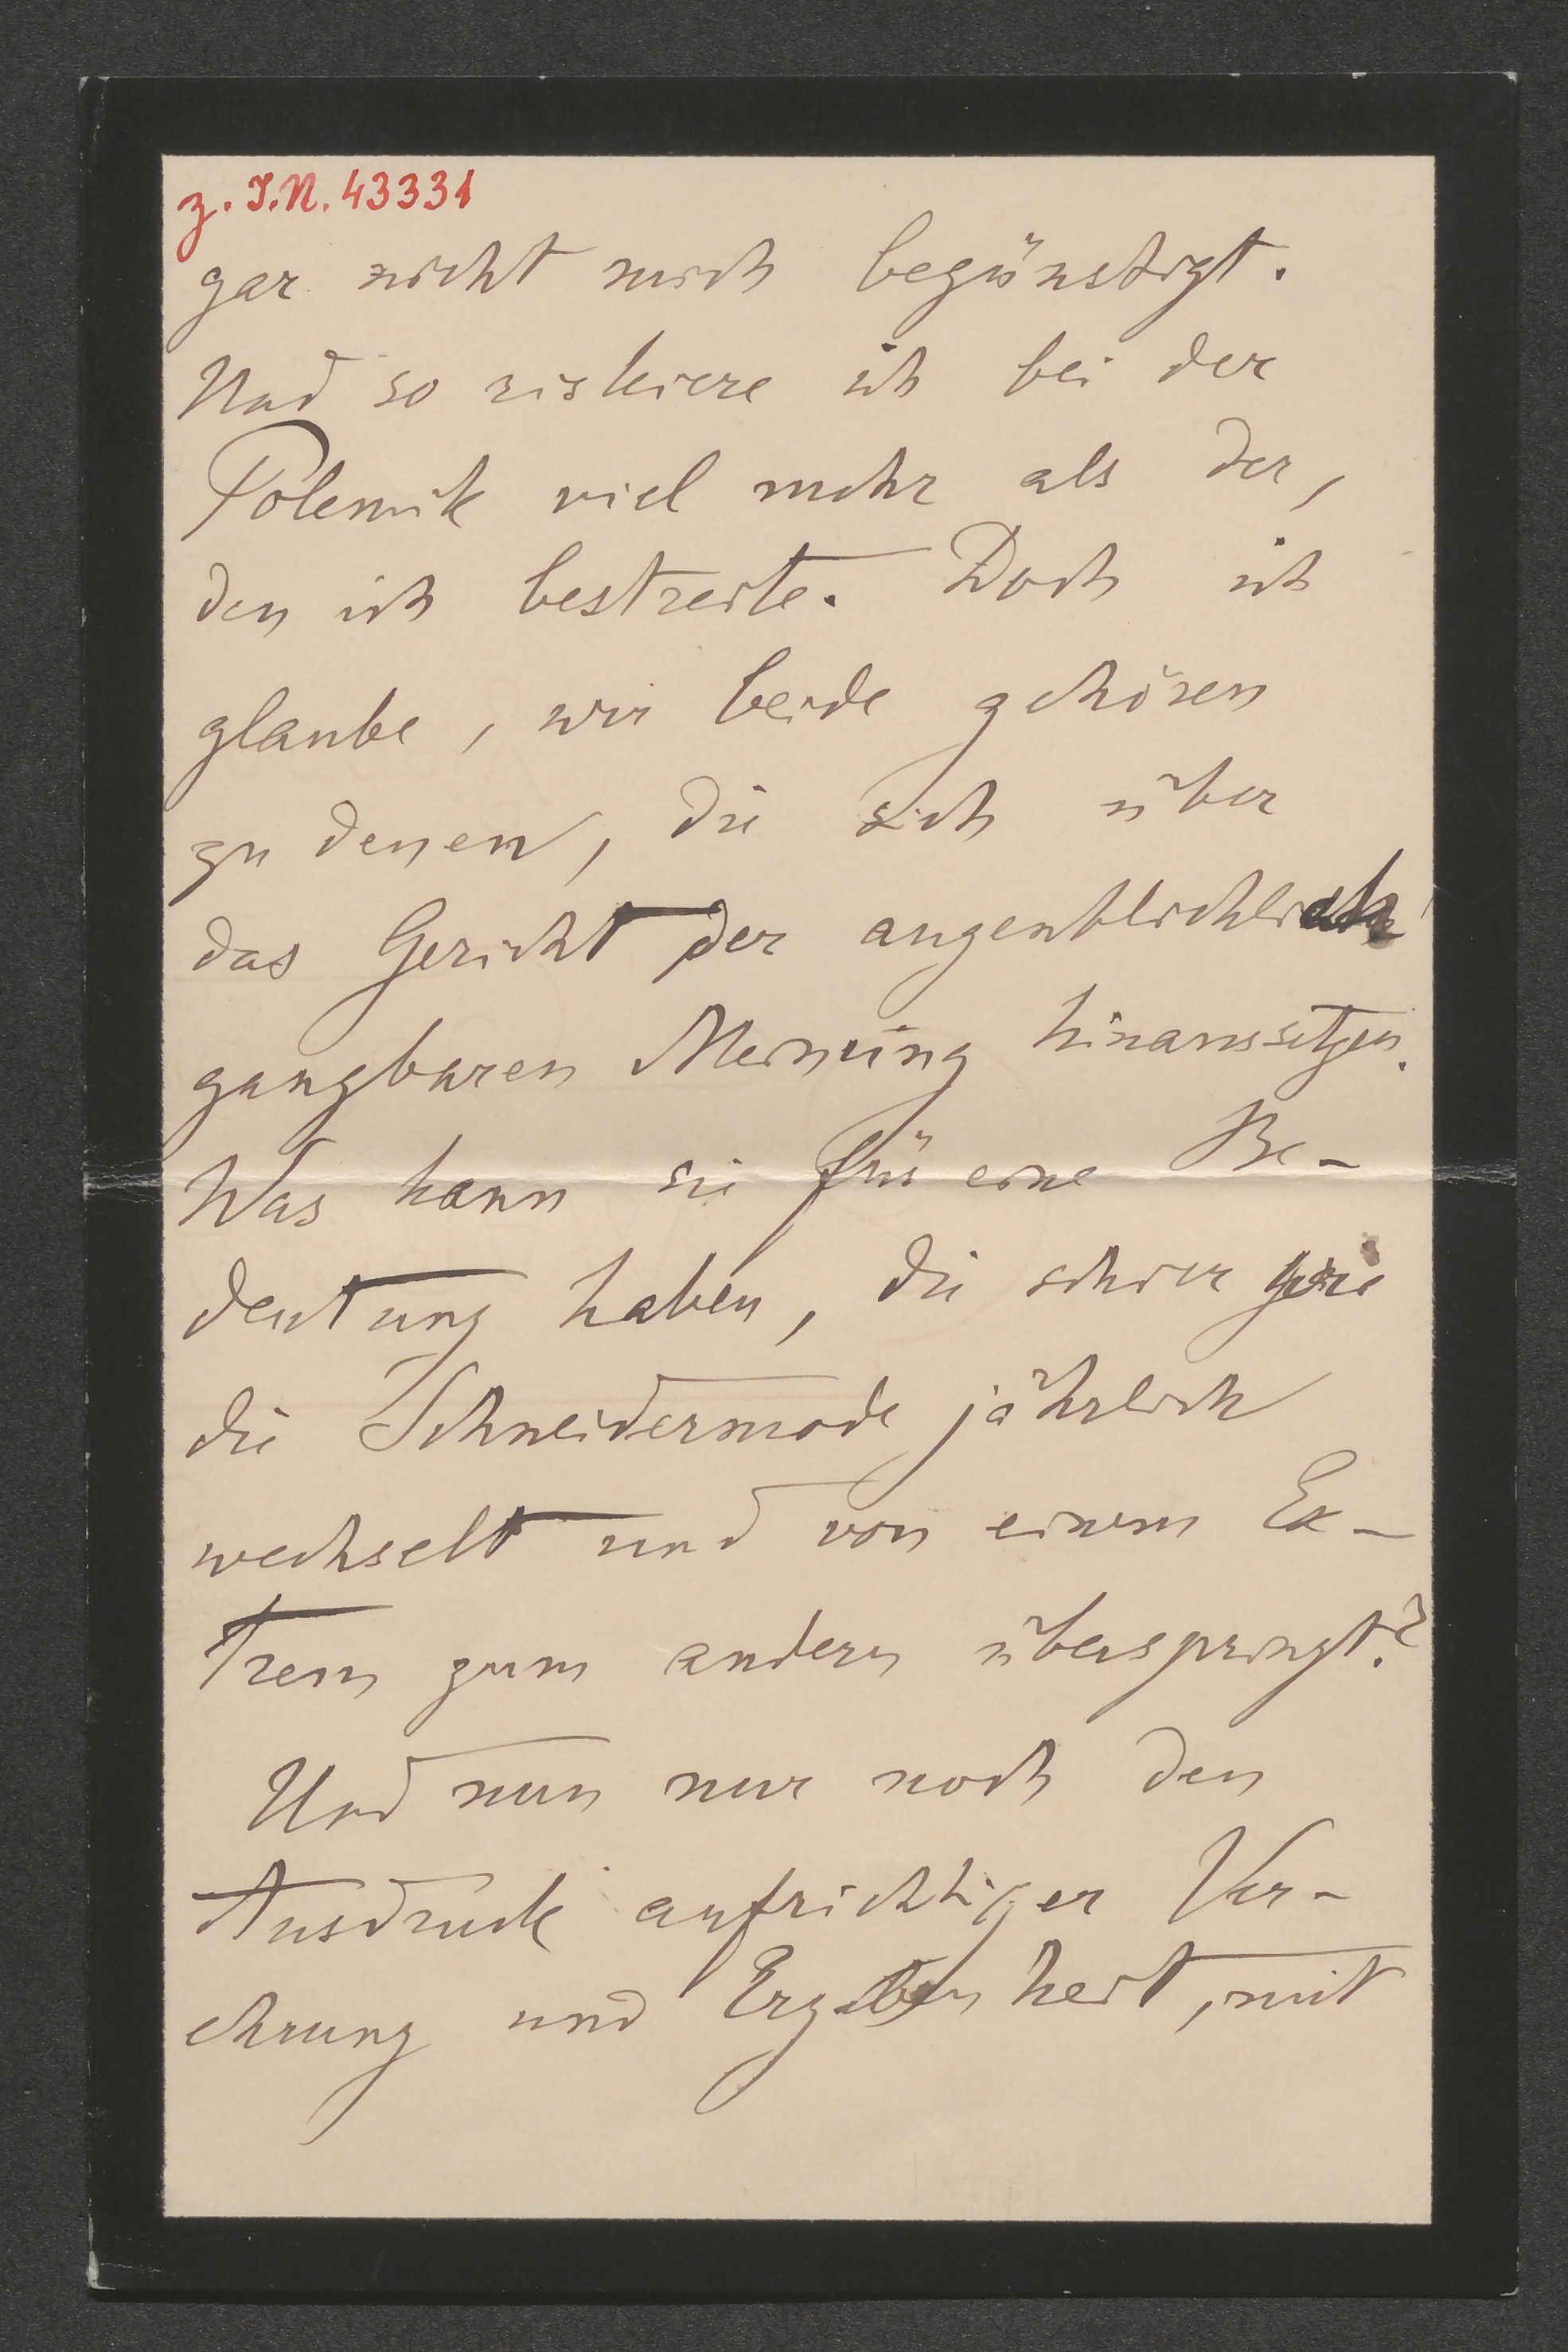 z. I.N. 43331
gar nicht mich begünstigt.
Und so riskiere ich bei der
Polemik viel mehr als der,
den ich bestreite. Doch ich
glaube, wir beide gehören
zu denen, die sich über
das Gericht der augenblicklich
gangbaren Meinung hinaussetzen.
Was kann sie für eine Be-
deutung haben, die schier wie
die Schneidermode jährlich
wechselt und von einem Ex-
trem zum andern überspringt?
Und nun nur noch den
Ausdruck aufrichtiger Ver-
ehrung und Ergebenheit, mit